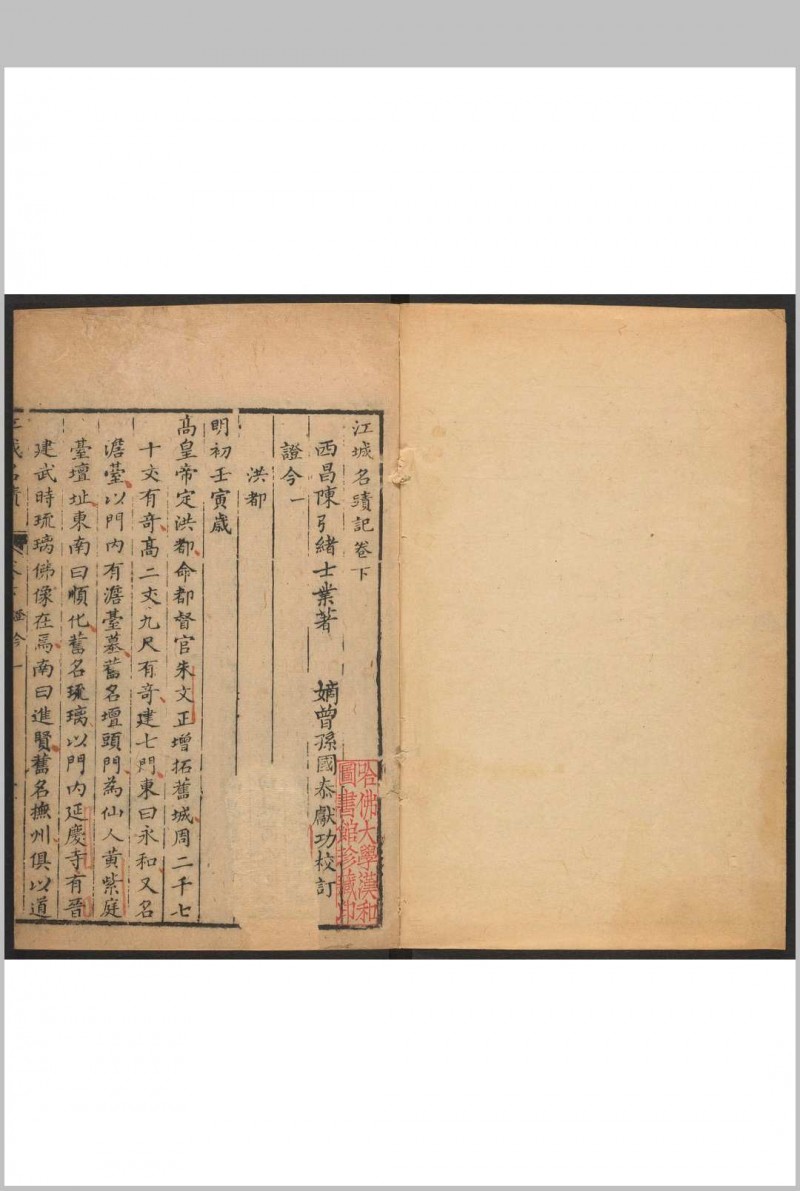 江城名蹟記卷下
西昌陳弘緒士業著　嫡曾孫國泰獻功校訂
證今一
洪都
明初壬寅歲
高皇帝定洪都命都督官朱文正增拓舊城周二千七
十丈有奇高二丈九尺有奇建七門東曰永和又名
澹臺以門内有澹臺墓舊名壇頭門為仙人黄紫庭
臺壇址東南曰順化舊名琉璃以門内延慶寺有晉
建武時琉璃佛像在焉南曰進賢舊名撫州俱以道
江城名蹟
卷下 證今一
哈佛大學漢和
圖書館珍藏印